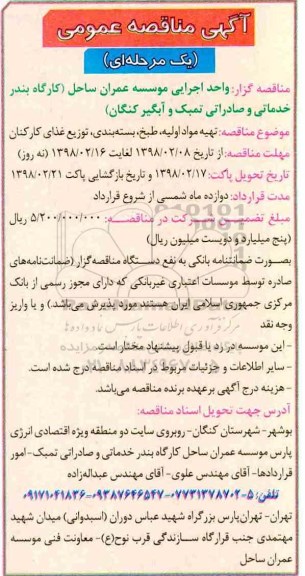 آگهی مناقصه عمومی
(یک مرحله‌ای)
مناقصه گزار: واحد اجرایی موسسه عمران ساحل (کارگاه بندر
خدماتی و صادراتی تمبک و آبگیر کنگان)
موضوع مناقصه: تهیه مواد اولیه، طبخ، بسته‌بندی، توزیع غذای کارکنان
مهلت مناقصه: از تاریخ ۱۳۹۸/۰۲/۰۸ لغایت ۱۳۹۸/۰۲/۱۶ (نه روز)
تاریخ تحویل پاکت: ۱۳۹۸/۰۲/۱۷ و تاریخ بازگشایی پاکت ۱۳۹۸/۰۲/۲۱
مدت قرارداد: دوازده ماه شمسی از شروع قرارداد
مبلغ تضمین شرکت در مناقصه: ۵/۲۰۰/۰۰۰/۰۰۰ ریال
(پنج میلیارد و دویست میلیون ریال)
بصورت ضمانتنامه بانکی به نفع دستگاه مناقصه‌گزار (ضمانت‌نامه‌های
صادره توسط موسسات اعتباری غیربانکی که دارای مجوز رسمی از بانک
مرکزی جمهوری اسلامی ایران هستند مورد پذیرش می‌باشد.) و یا واریز
وجه نقد
- این موسسه در رد یا قبول پیشنهاد مختار است.
- سایر اطلاعات و جزئیات مربوط در اسناد مناقصه درج شده است.
- هزینه درج آگهی برعهده برنده مناقصه می‌باشد.
آدرس جهت تحویل اسناد مناقصه:
بوشهر- شهرستان کنگان- روبروی سایت دو منطقه ویژه اقتصادی انرژی
پارس موسسه عمران ساحل کارگاه بندر خدماتی و صادراتی تمبک- امور
قراردادها- آقای مهندس علوی- آقای مهندس عبداله‌زاده
تلفن: ۵-۰۷۷۳۱۳۷۸۷۰۲-۰۹۳۸۷۶۴۶۵۴۷-۰۹۱۷۱۰۴۱۸۳۶
تهران- تهران‌پارس بزرگراه شهید عباس دوران (استیدوانی) میدان شهید
مهتمدی جنب قرارگاه سازندگی قرب نوح(ع)- معاونت فنی موسسه
عمران ساحل